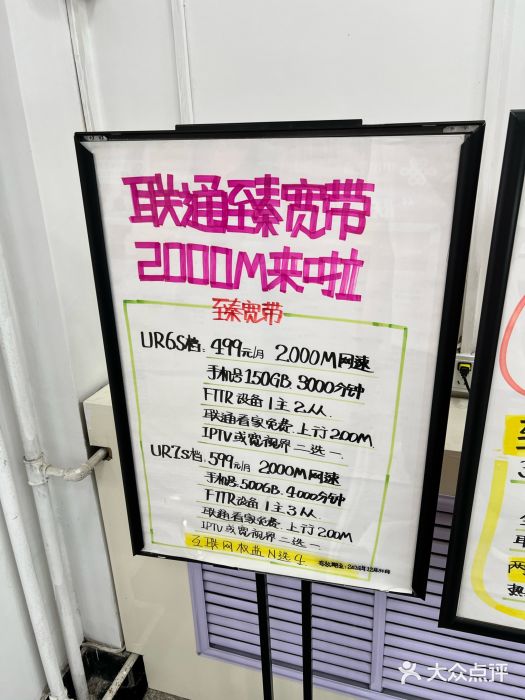 联通至臻宽带
2000M来啦
至臻宽带
UR6S档: 499元/月 2000M网速
手机号150GB. 3000分钟
FTTR设备1主2从.
联通看家免费.上行200M
IPTV或宽视界二选一
UR7S档: 599元/月 2000M网速
手机号500GB. 4000分钟
FTTR设备1主3从
联通看家免费.上行200M
IPTV或宽视界二选一
互联网权益N选4
大众点评